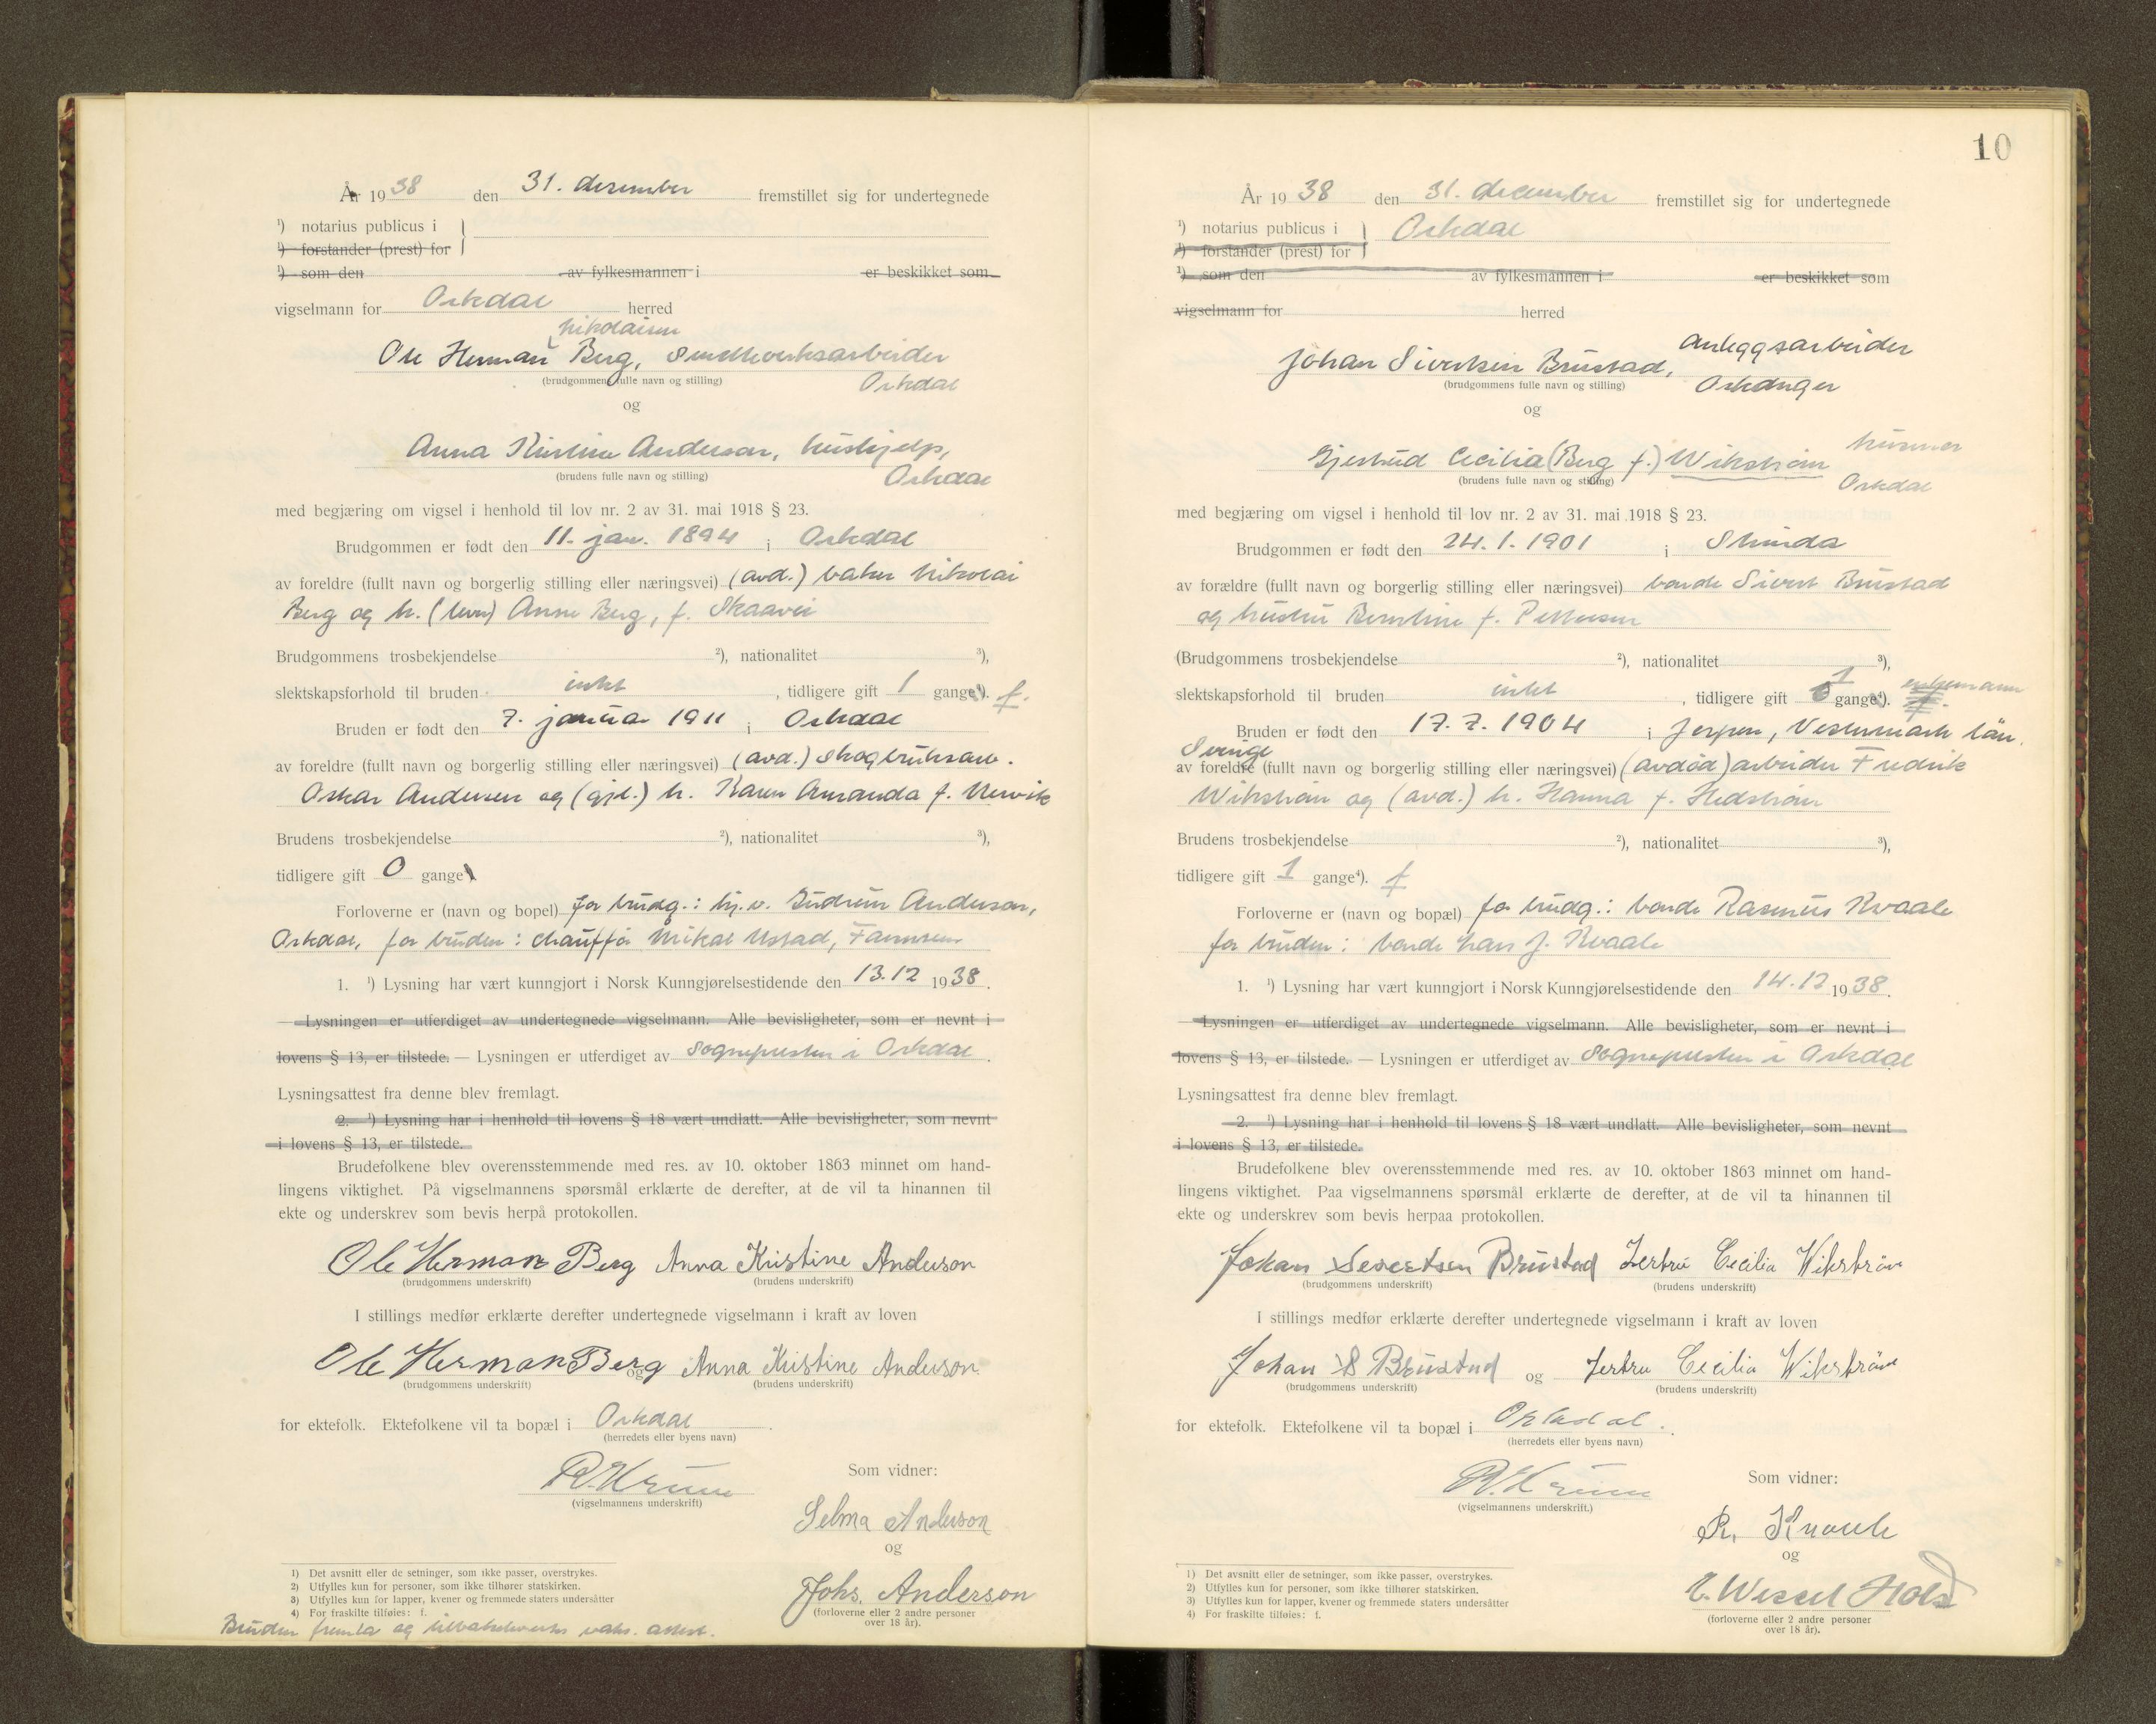 År 1938 den 31. desember fremstillet sig for undertegnede
¹) notarius publicus i
¹) forstander (prest) for
¹) som den av fylkesmannen i er beskikket som
vigselmann for Orkdal herred
Nikolaisen
Ole Herman Berg, Smelteverksarbeider
(brudgommens fulle navn og stilling) Orkdal
og
Anna Kristine Anderson, hushjelp,
(brudens fulle navn og stilling) Orkdal
med begjæring om vigsel i henhold til lov nr. 2 av 31. mai 1918 § 23.
Brudgommen er født den 11. jan. 1894 i Orkdal
av foreldre (fullt navn og borgerlig stilling eller næringsvei) (avd.) baker Nikolai
Berg og h. (lever) Anne Berg, f. Skaavei
Brudgommens trosbekjendelse ²), nationalitet ³),
slektskapsforhold til bruden intet, tidligere gift 1 gange⁴). f.
Bruden er født den 7. januar 1911 i Orkdal
av foreldre (fullt navn og borgerlig stilling eller næringsvei) (avd.) skogbruksarb.
Oskar Andersen og (gjl.) h. Karen Amanda f.
Brudens trosbekjendelse ²), nationalitet ³),
tidligere gift 0 gange
Forloverne er (navn og bopel) for brudg.: hj.v. Gudrun Anderson,
Orkdal, for bruden: chauffør Mikal Ustad, Fannrem
1. ¹) Lysning har vært kunngjort i Norsk Kunngjørelsestidende den 13.12 1938.
Lysningen er utferdiget av undertegnede vigselmann. Alle bevisligheter, som er nevnt i
lovens § 13, er tilstede. — Lysningen er utferdiget av Sognepresten i Orkdal.
Lysningsattest fra denne blev fremlagt.
2. ¹) Lysning har i henhold til lovens § 18 vært undlatt. Alle bevisligheter, som nevnt
i lovens § 13, er tilstede.
Brudefolkene blev overensstemmende med res. av 10. oktober 1863 minnet om hand-
lingens viktighet. På vigselmannens spørsmål erklærte de derefter, at de vil ta hinannen til
ekte og underskrev som bevis herpå protokollen.
Ole Herman Berg Anna Kristine Anderson
(brudgommens underskrift) (brudens underskrift)
I stillings medfør erklærte derefter undertegnede vigselmann i kraft av loven
Ole Herman Berg og Anna Kristine Anderson
(brudgommens underskrift) (brudens underskrift)
for ektefolk. Ektefolkene vil ta bopæl i Orkdal.
(herredets eller byens navn)
(vigselmannens underskrift)
Som vidner:
Selma Anderson
og
Johs. Anderson
(forloverne eller 2 andre personer
over 18 år).
1) Det avsnitt eller de setninger, som ikke passer, overstrykes.
2) Utfylles kun for personer, som ikke tilhører statskirken.
3) Utfylles kun for lapper, kvener og fremmede staters undersåtter
4) For fraskilte tilføies: f.
Bruden fremla og tilbakeleveres vaks. attest.
10
År 1938 den 31. december fremstillet sig for undertegnede
¹) notarius publicus i Orkdal
¹) forstander (prest) for
¹) som den av fylkesmannen i er beskikket som
vigselmann for herred
Johan Sivertsen Brustad, anleggsarbeider
(brudgommens fulle navn og stilling) Orkanger
og
Gjertrud Cecilia (Berg f.) Wikström husmor
(brudens fulle navn og stilling) Orkdal
med begjæring om vigsel i henhold til lov nr. 2 av 31. mai 1918 § 23.
Brudgommen er født den 24.1.1901 i Strinda
av forældre (fullt navn og borgerlig stilling eller næringsvei) bonde Sivert Brustad
og hustru Berntine f. Pettersen
(Brudgommens trosbekjendelse ²), nationalitet ³),
slektskapsforhold til bruden intet, tidligere gift 1 gange⁴). enkemann
Bruden er født den 17.7.1904 i Jerpen, län.
Sverige
av foreldre (fullt navn og borgerlig stilling eller næringsvei) (avdød) arbeider Fredrik
Wikström og (avd.) h. Hanna f. Hedström
Brudens trosbekjendelse ²), nationalitet ³),
tidligere gift 1 gange⁴). f
Forloverne er (navn og bopæl) for brudg.: bonde Rasmus Kvaale
for bruden: bonde Hans J. Kvaale
1. ¹) Lysning har vært kunngjort i Norsk Kunngjørelsestidende den 14.12 1938.
Lysningen er utferdiget av undertegnede vigselmann. Alle bevisligheter, som er nevnt i
lovens § 13, er tilstede. — Lysningen er utferdiget av Sognepresten i Orkdal
Lysningsattest fra denne blev fremlagt.
2. ¹) Lysning har i henhold til lovens § 18 vært undlatt. Alle bevisligheter, som nevnt
i lovens § 13, er tilstede.
Brudefolkene blev overensstemmende med res. av 10. oktober 1863 minnet om hand-
lingens viktighet. Paa vigselmannens spørsmål erklærte de derefter, at de vil ta hinannen til
ekte og underskrev som bevis herpaa protokollen.
Johan Severtsen Brustad Jertru Cecilia Wikström
(brudgommens underskrift) (brudens underskrift)
I stillings medfør erklærte derefter undertegnede vigselmann i kraft av loven
Johan S Brustad og Jertru Cecilia Wikström
(brudgommens underskrift) (brudens underskrift)
for ektefolk. Ektefolkene vil ta bopæl i Orkdal.
(herredets eller byens navn)
(vigselmannens underskrift.)
Som vidner:
R. Kvaale
og
E. Wessel Holst
(forloverne eller 2 andre personer
over 18 år).
1) Det avsnitt eller de setninger, som ikke passer, overstrykes.
2) Utfylles kun for personer, som ikke tilhører statskirken.
3) Utfylles kun for lapper, kvener og fremmede staters undersåtter
4) For fraskilte tilføies: f.